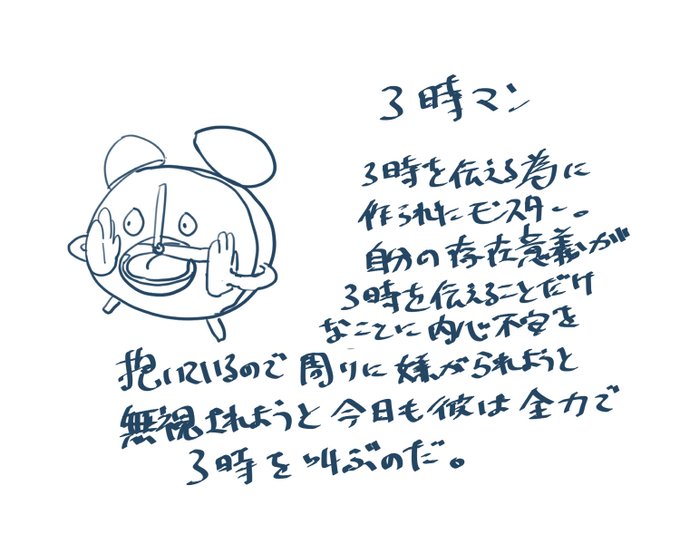 3時マン
3時を伝える為に
作られたモンスター。
自分の存在意義が
3時を伝えることだけ
なことに内心不安を
抱いているので周りに嫌がられようと
無視されようと今日も彼は全力で
3時を叫ぶのだ。